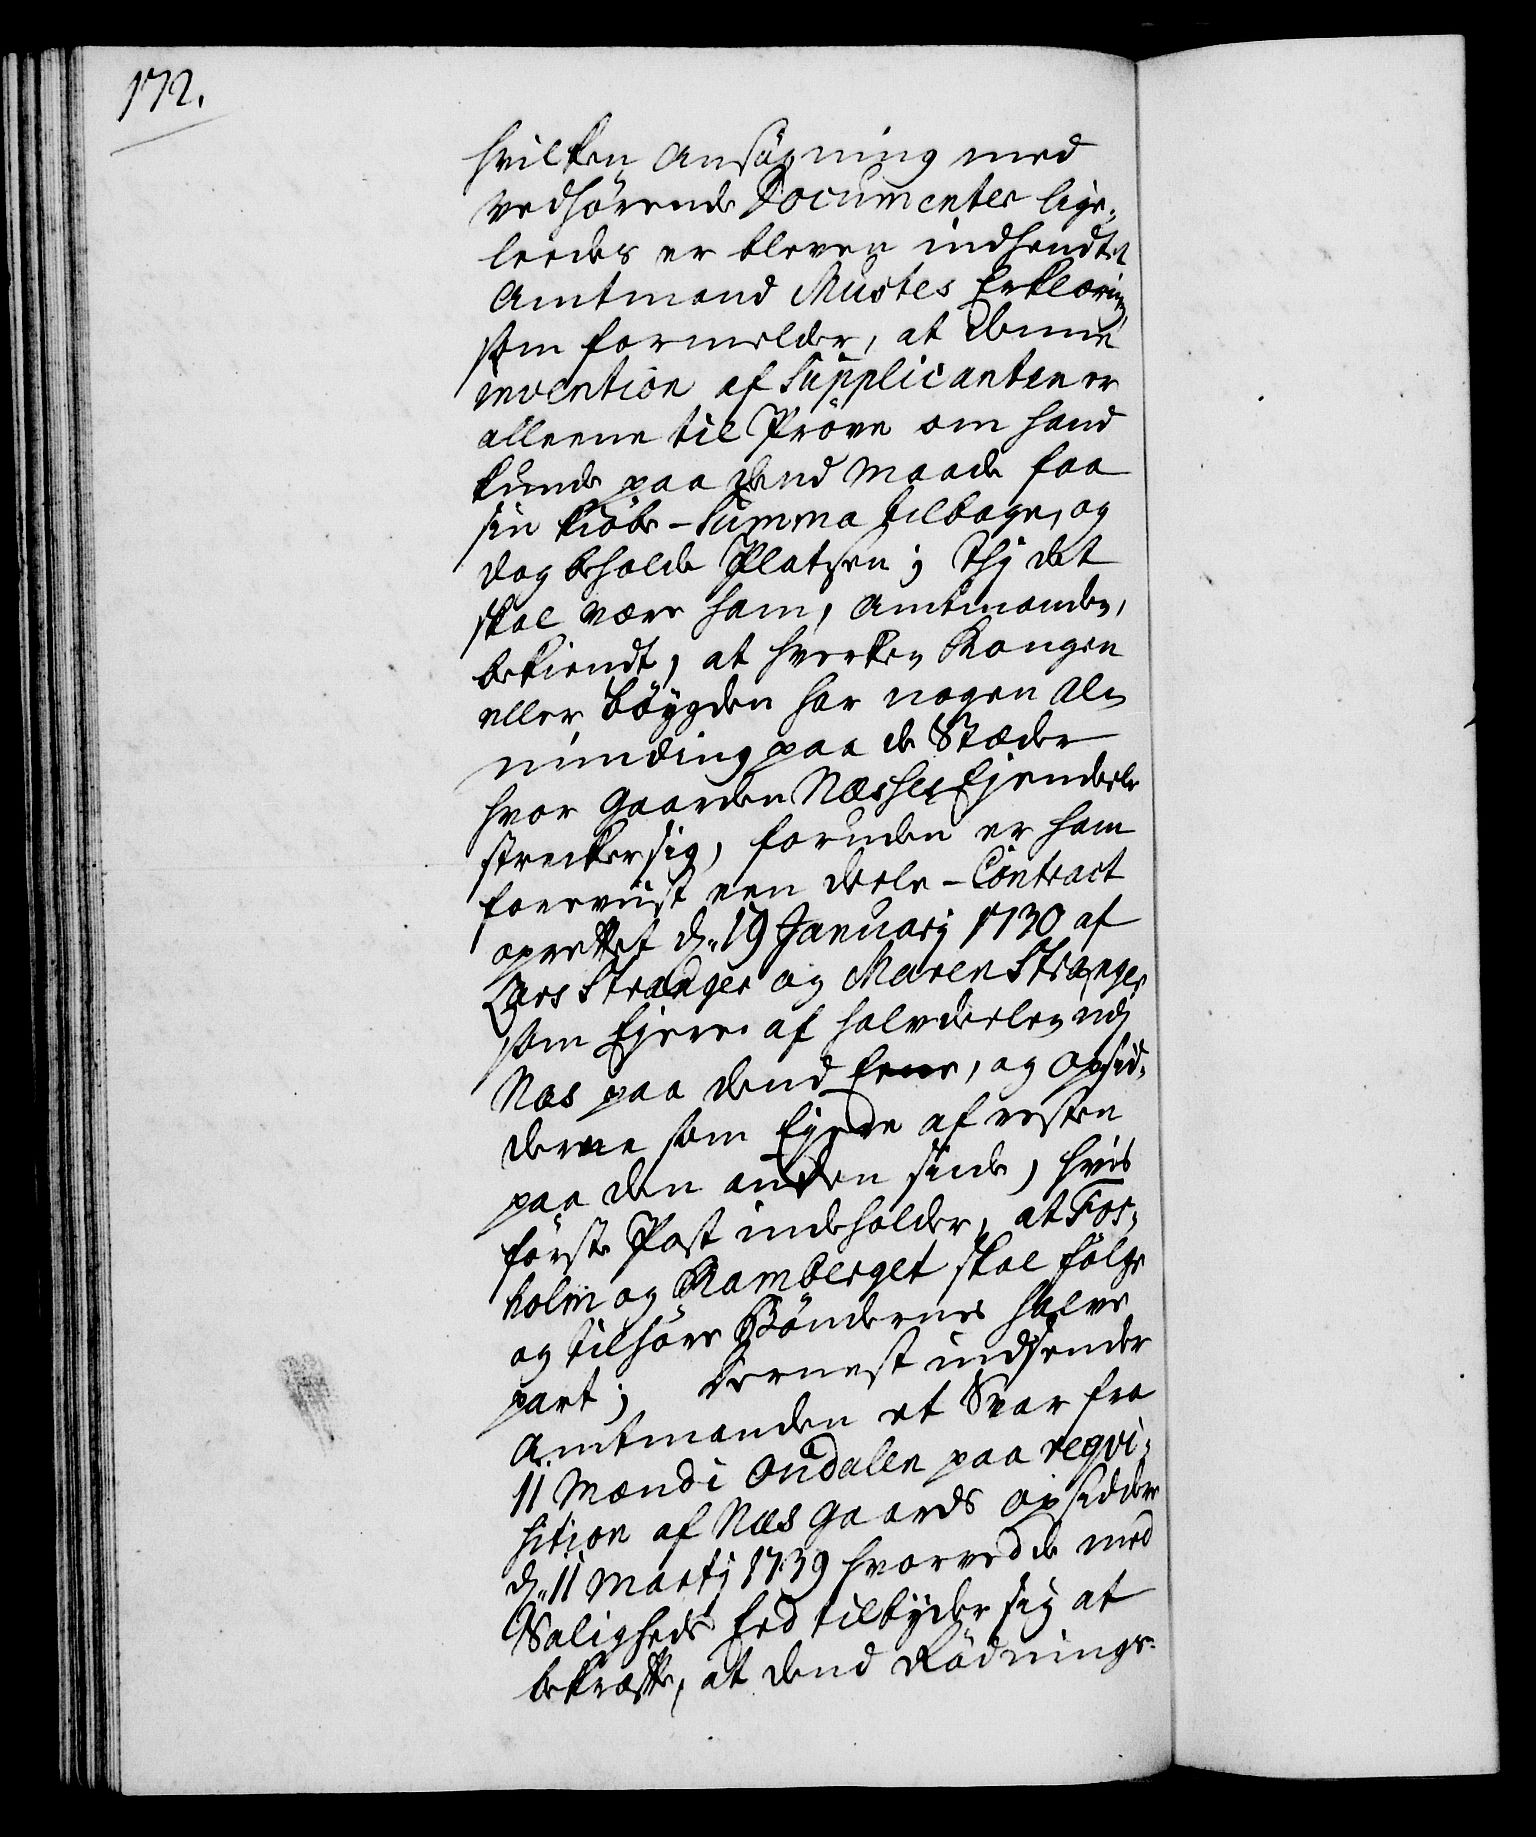 172.
hvilken Ansøgning med
vedhørende Documenter lige¬
leedes er bleven indhendtet
Amtmand Mustes Erklæring,
som formelder, at denne
invention af Supplicanten er
alleene til Prøve om hand
kunde paa dend Maade faa
sin kiøbe-Summa tilbage, og
dog beholde Platsen; Thj det
skal være ham, Amtmanden,
bekiendt, at hverken Kongen
eller bøygden har nogen Al¬
minding paa de Stæder
hvor Gaarden Næshes Ejendeele
strecker sig, foruden er ham
foreviist een deele-Contract
oprettet d. 19 Januarj 1730 af
Lars Stranger og Maren Stranger
som Ejere af halvdeelen udj
Næs paa dend Eene, og opsid¬
derne som Ejere af resten
paa den anden side, hvis
første Post indeholder, at Fos¬
holm og Ramberget skal følge
og tilhøre Bøndernes halve
part; Dernest indsender
Amtmanden et Svar fra
11 Mænd i Oudalen paa reqvi¬
sition af Næs Gaards opsiddere
d. 11 Martj 1739 hvorved de med
Saligheds Eed tilbyder sig at
bekræfte, at dend Rødnings¬